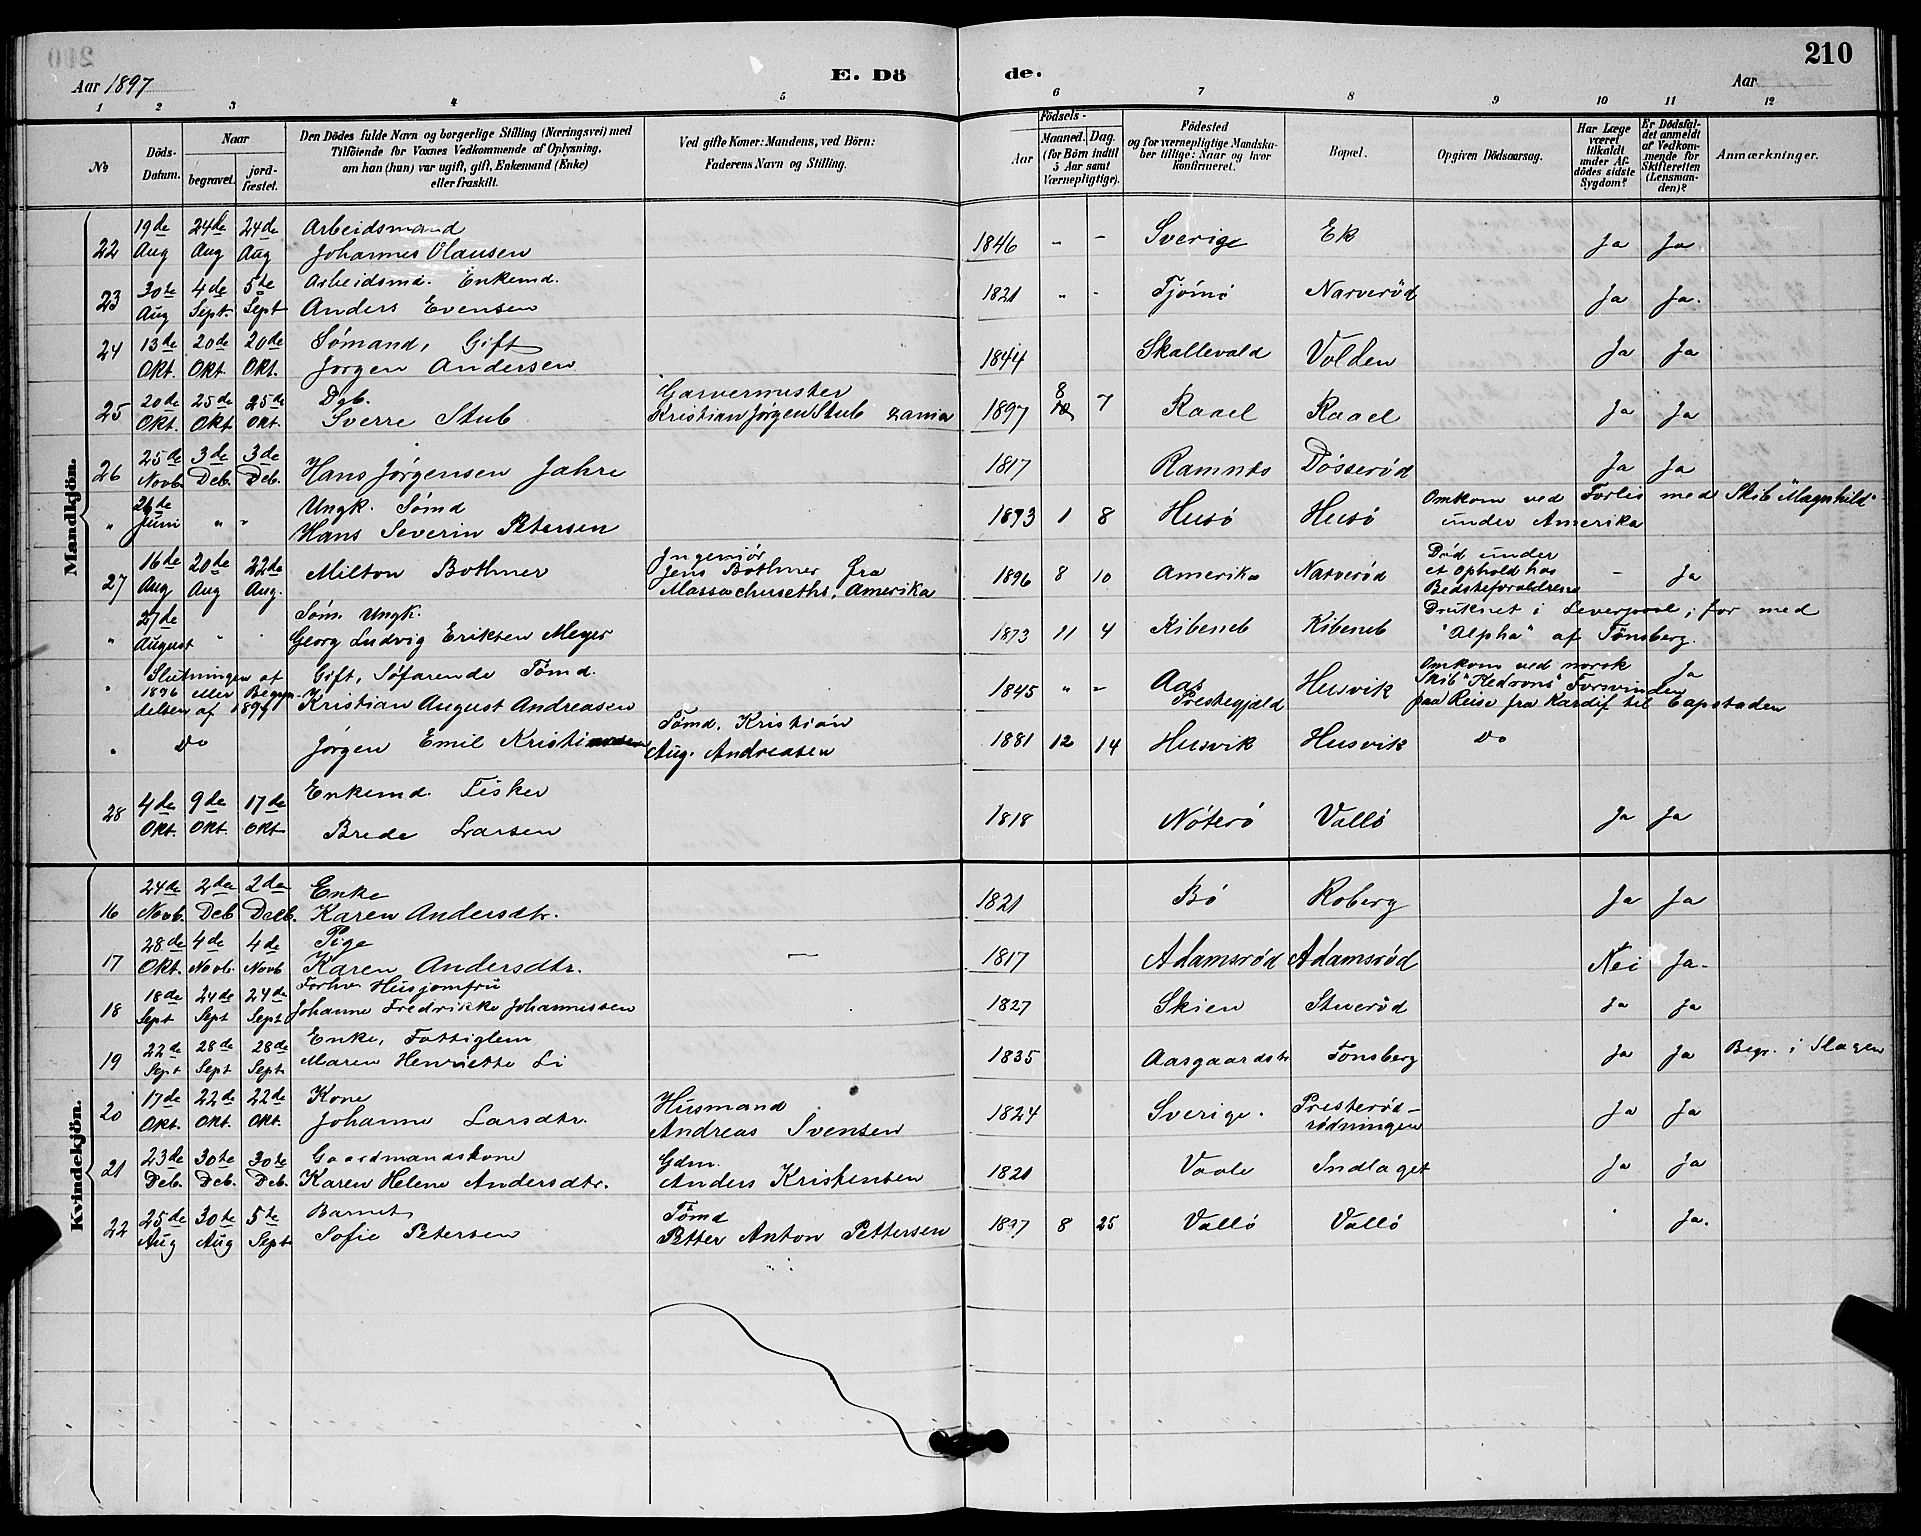 210
Aar 1897
E. Dö
de.
Aar
1 2 3 4 5 6 7 8 9 10 11 12
No
Döds-Datum.
Naar
begravet.
jord-fæstet.
Den Dödes fulde Navn og borgerlige Stilling (Næringsvei) med
Tilföiende for Voxnes Vedkommende af Oplysning,
om han (hun) var ugift, gift, Enkemand (Enke)
eller fraskilt.
Ved gifte Koner: Mandens, ved Börn:
Faderens Navn og Stilling.
Födsels-
Aar
Maaned. Dag.
(for Börn indtil
5 Aar samt
Værnepligtige).
Födested
og for værnepligtige Mandska-
ber tillige: Naar og hvor
konfirmeret.
Bopæl.
Opgiven Dödsaarsag.
Har Læge
været
tilkaldt
under Af-
dödes sidste
Sygdom?
Er Dödsfal-
det anmeldt
af Vedkom-
mende for
Skifteretten
(Lensman-
den)?
Anmærkninger.
Mandkjön.
22 19de Aug 24de Aug 24de Aug Arbeidsmand Johannes Olausen 1846 " - Sverige Ek Ja Ja
23 30te Aug 4de Sept. 5te Sept Arbeidsmd. Enkemd. Anders Evensen 1821 " - Tjømø Narverød Ja Ja.
24 13de Okt. 20de Okt. 20de Okt. Sømand, Gift Jørgen Andersen 1844 Skallevald Volden Ja Ja
25 20de Okt. 25de Okt 25de Okt. Sverre Stub Garvermester Kristian Jørgen Stub 1897 8 7 Raael Raael Ja Ja
26 25de Novb. 3de Deb. 3de Deb. Hans Jørgensen Jahre 1817 Ramnes Døsserød Ja Ja
" 26de Juni " " Ungk. Sømd Hans Severin Petersen 1873 1 8 Husø Husø Omkom ved Forlis med Skib "Magnhild" under Amerika
27 16de Aug 20de Aug 22de Aug. Milton Bothner Ingeniør Jens Bothner fra Massachuseths, Amerika 1896 8 10 Amerika Narverød Død under et Ophold hos Bedsteforældrene - Ja
" 27de August " " Søm. Ungk. Georg Ludvig Eriksen Meyer 1873 11 4 Kibeneb Kibeneb Druknet i Leverpool; for med "Alpha" af Tönsberg.
" Slutningen af 1896 eller Begyndelsen af 1897 Gift, Søfarende Tømd. Kristian August Andreasen 1845 " - Aas Prestegjeld Husvik Omkom ved norsk Skib "Kedrons" Forsvinden paa Reise fra Kardif til Capstaden Ja
" Do Jørgen Emil Tømd. Kristian Aug. Andreasen 1881 12 14 Husvik Husvik Do
28 4de Okt. 9de Okt. 17de Okt Enkemd. Fisker Brede Larsen 1818 Nøterø Vallø Ja Ja
Kvindekjön.
16 24de Novb. 2den Deb 2den Decb. Enke Karen Andersdtr. 1821 Bø Roberg Ja Ja
17 28de Okt. 4de Novb. 4de Novb Pige Karen Andersdtr. — 1817 Adamsrød Adamsrød Nei Ja.
18 18de Sept 24de Sept 24de Sept Forhv. Husjomfru Johanne Fredrikke Johannessen 1827 Skien Ja Ja
19 22de Sept 28de Sept 28de Sept. Enke, Fattiglem Maren Henriette Li 1835 Aasgaardstr Tønsberg Ja Ja Begr. i Slagen
20 17de Okt. 22de Okt. 22de Okt. Kone Johanne Larsdtr. Husmand Andreas Svensen 1824 Sverige. Presterød-rødningen Ja Ja
21 23de Deb. 30te Deb. 30te Deb. Gaardmandskone Karen Helene Andersdtr. Gdm. Anders Kristensen 1821 Vaale Indlaget Ja Ja
22 25de Aug 30te Aug 5te Sept Barnet Sofie Petersen Tømd Petter Anton Pettersen 1897 8 25 Vallø Vallø " Ja.